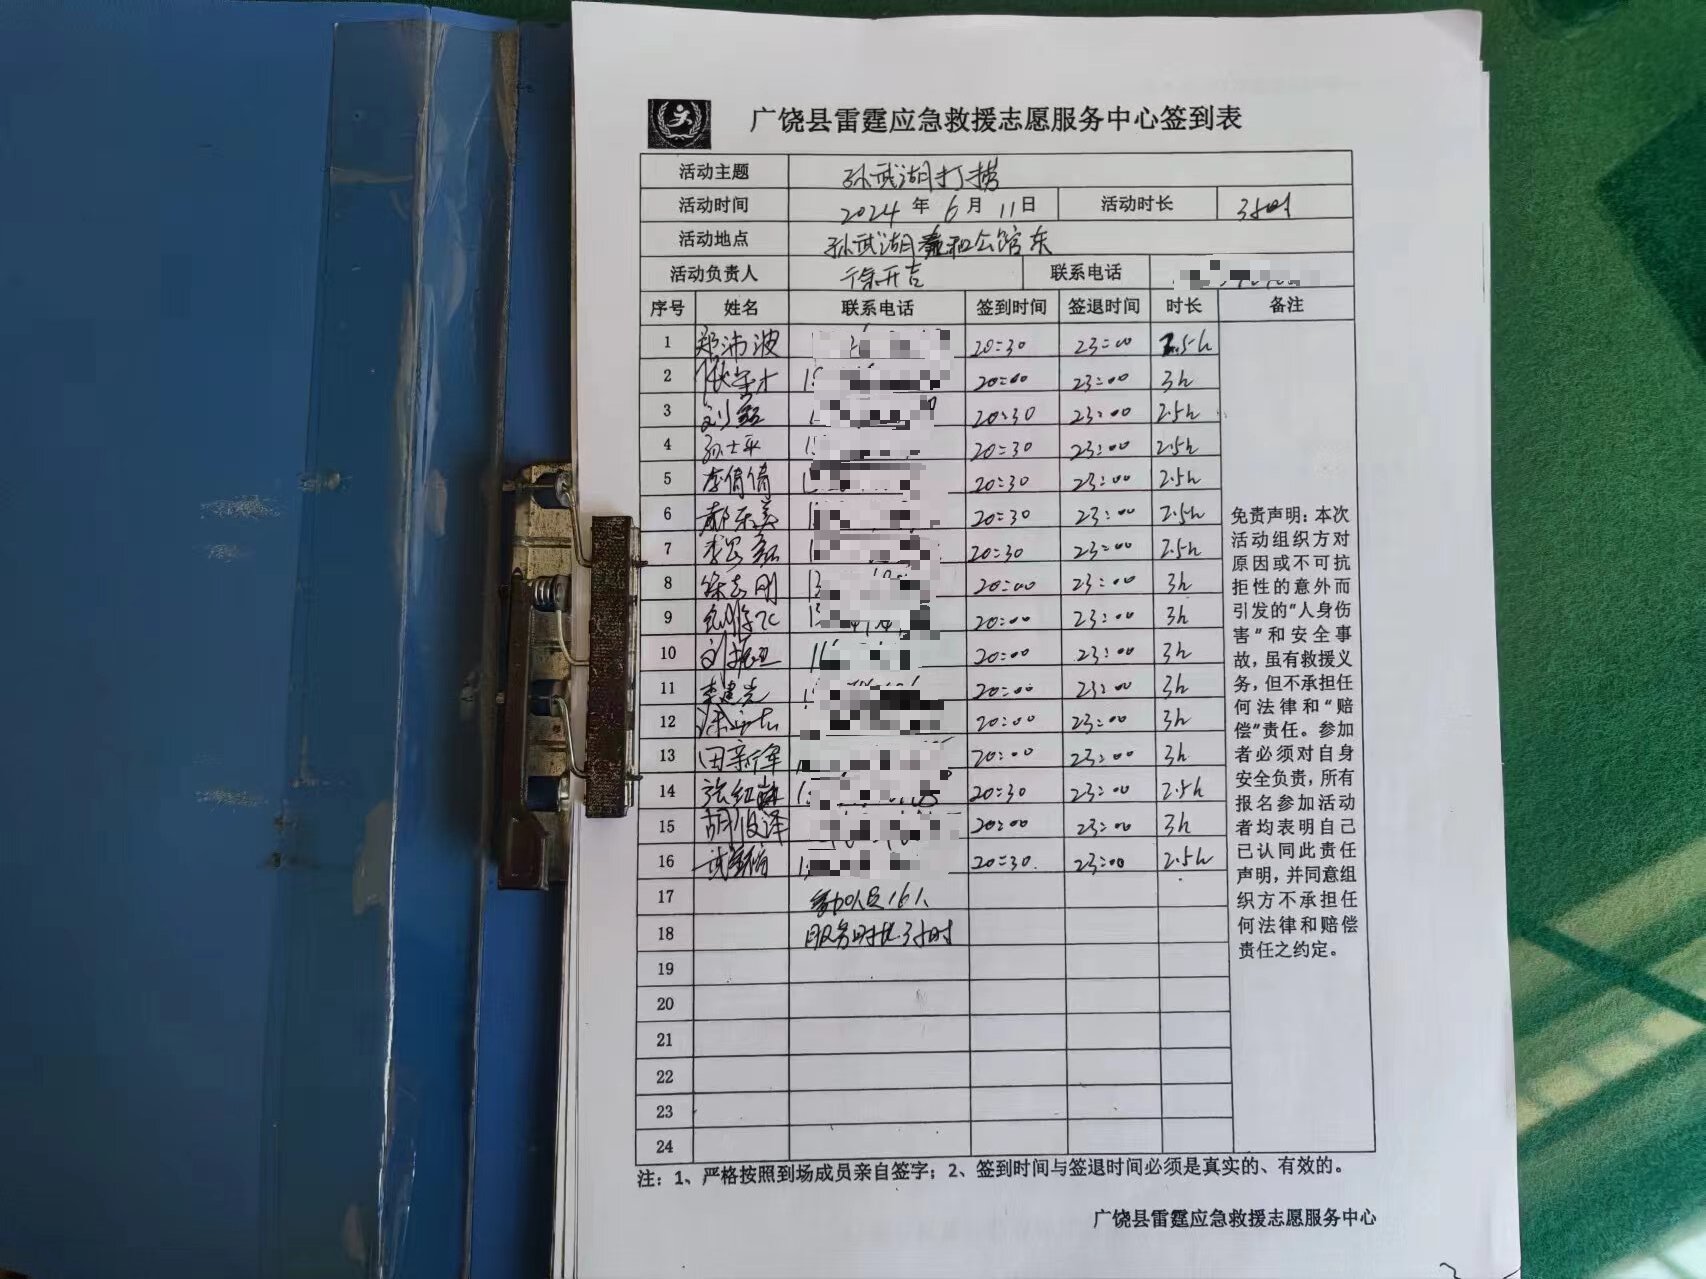 广饶县雷霆应急救援志愿服务中心签到表
活动主题 孙武湖打捞
活动时间 2024年6月11日 活动时长 3小时
活动地点 孙武湖泰和公馆东
活动负责人 徐开吉 联系电话
序号 姓名 联系电话 签到时间 签退时间 时长 备注
1 郑沛波 20:30 23:00 2.5h
2 20:00 23:00 3h
3 20:30 23:00 2.5h
4 孙士平 20:30 23:00 2.5h
5 李倩倩 20:30 23:00 2.5h
6 郝东美 20:30 23:00 2.5h
7 20:30 23:00 2.5h
8 徐志刚 20:00 23:00 3h
9 20:00 23:00 3h
10 20:00 23:00 3h
11 李建光 20:00 23:00 3h
12 20:00 23:00 3h
13 田新军 20:00 23:00 3h
14 20:30 23:00 2.5h
15 胡俊泽 20:00 23:00 3h
16 20:30. 23:00 2.5h
17 参加人员16人
18 服务时长3小时
19
20
21
22
23
24
免责声明：本次
活动组织方对
原因或不可抗
拒性的意外而
引发的“人身伤
害”和安全事
故，虽有救援义
务，但不承担任
何法律和“赔
偿”责任。参加
者必须对自身
安全负责，所有
报名参加活动
者均表明自己
已认同此责任
声明，并同意组
织方不承担任
何法律和赔偿
责任之约定。
注：1、严格按照到场成员亲自签字；2、签到时间与签退时间必须是真实的、有效的。
广饶县雷霆应急救援志愿服务中心